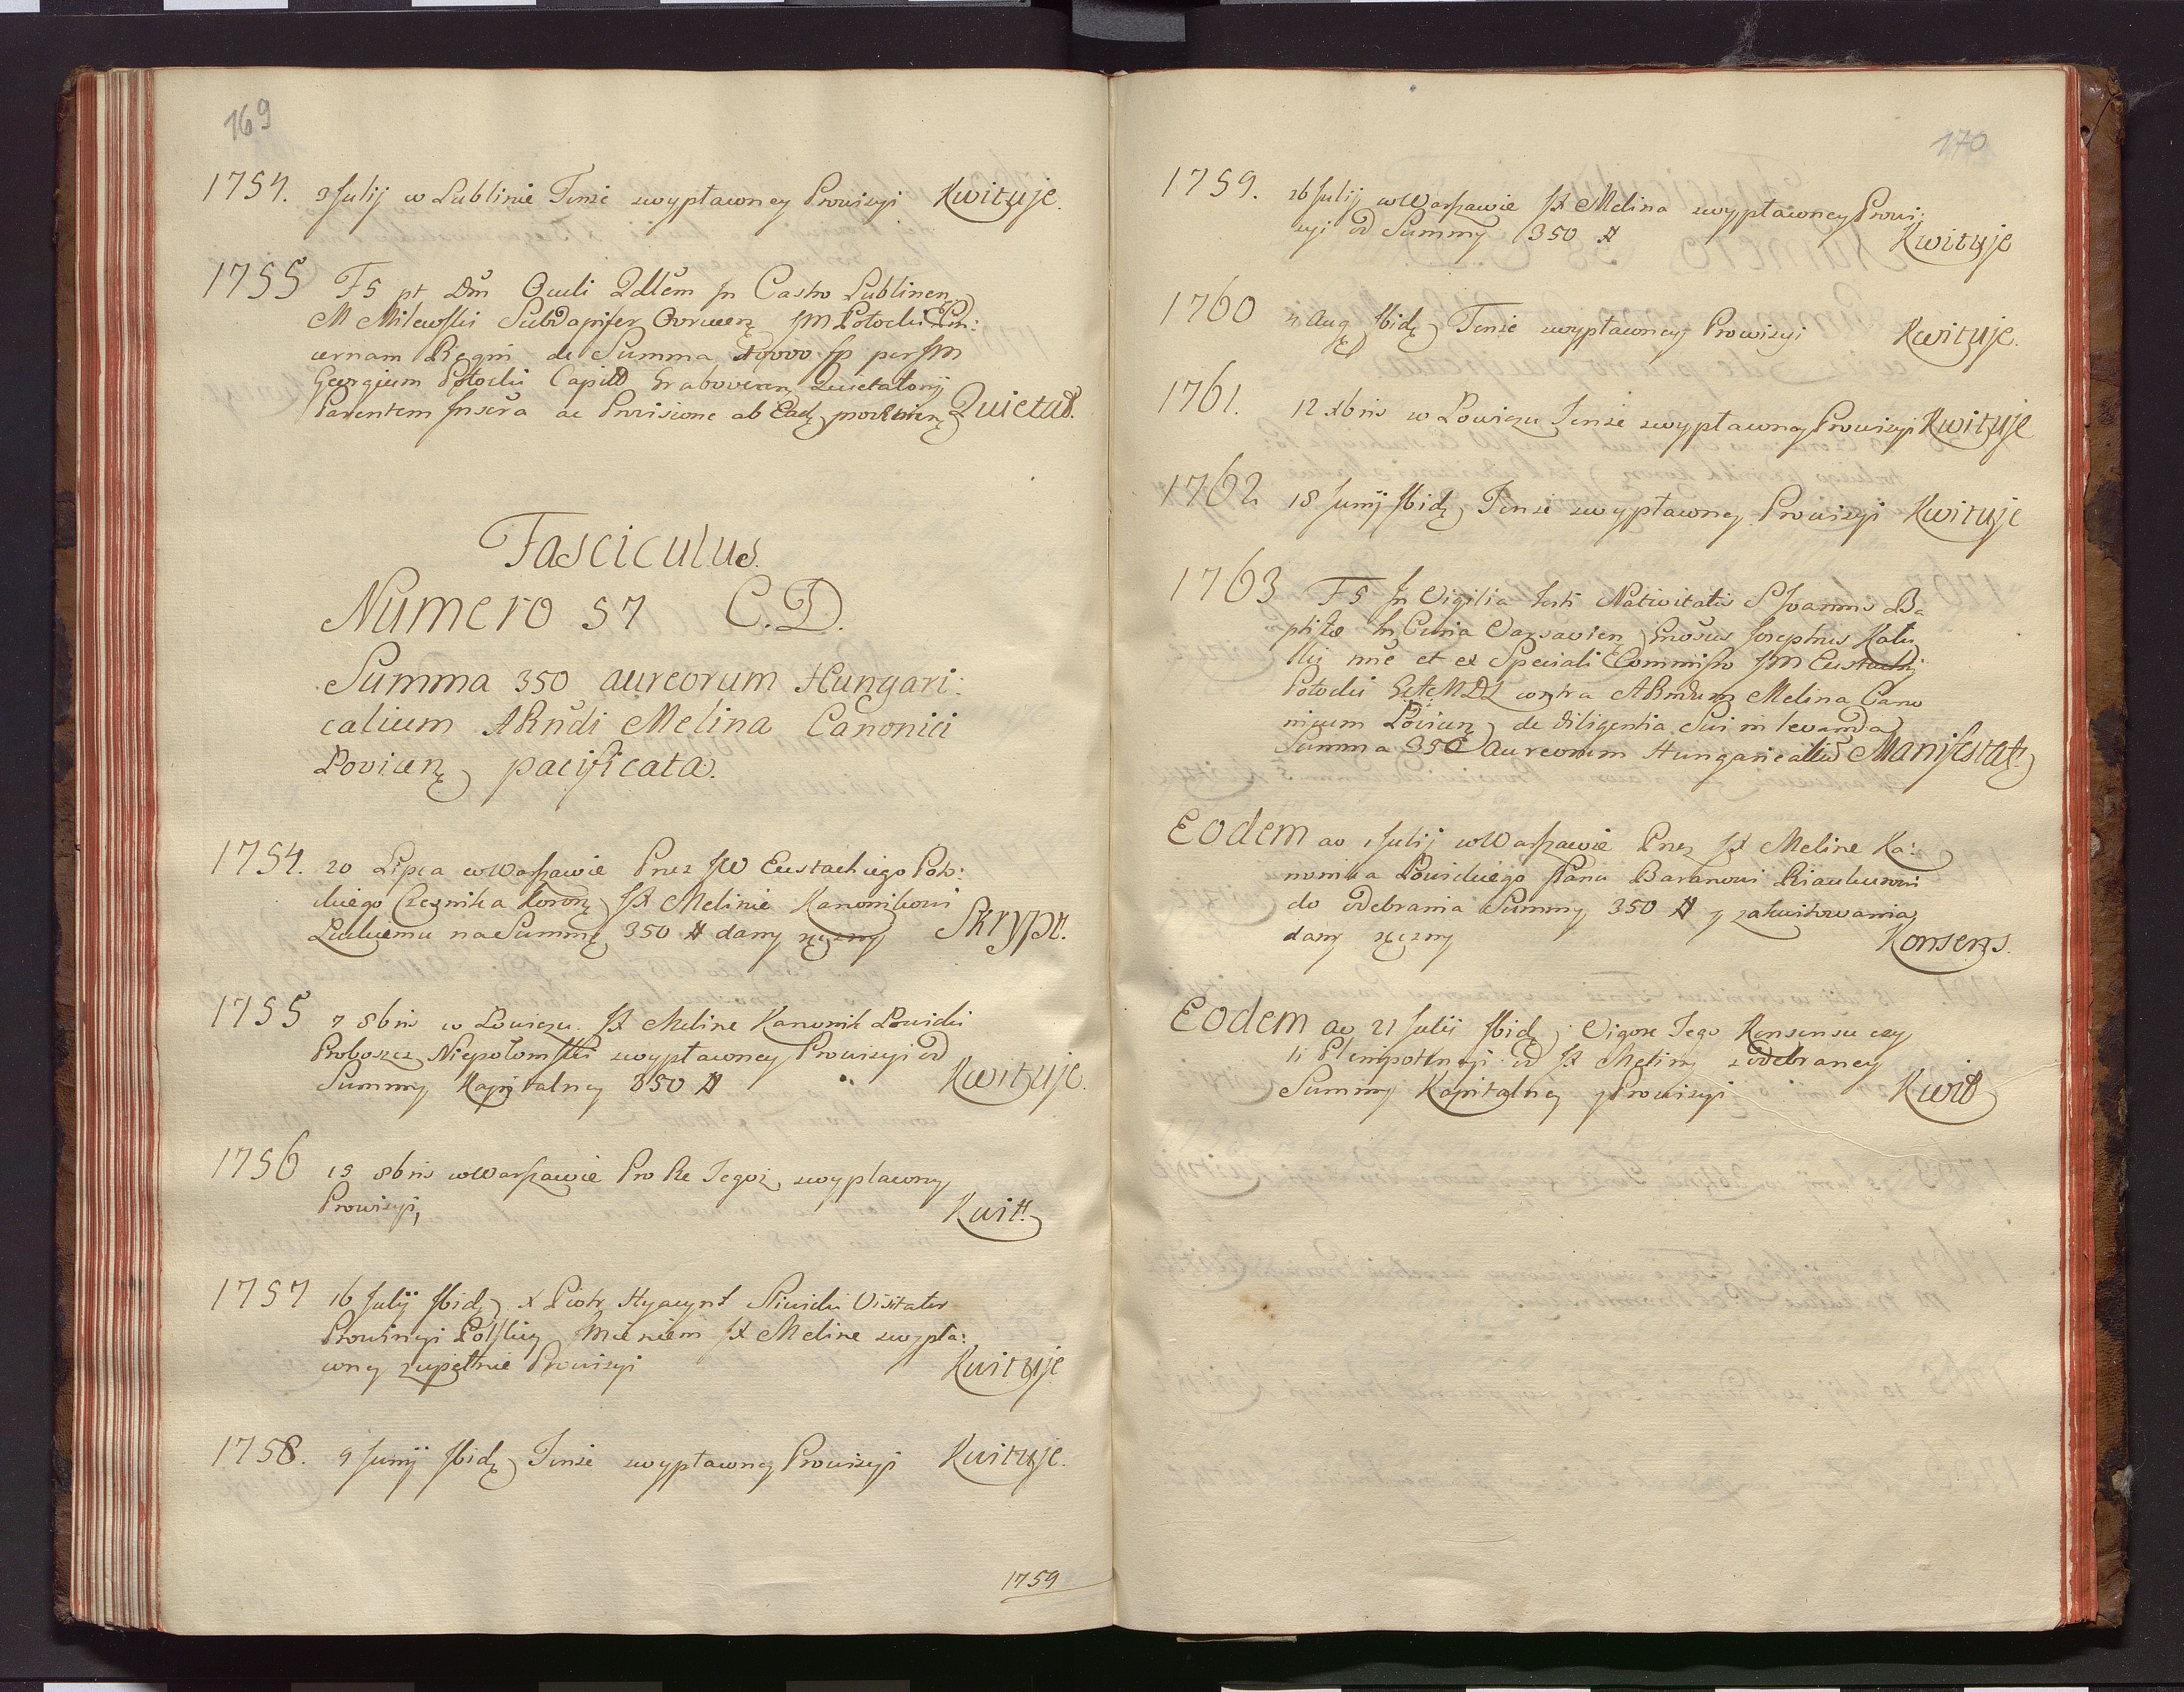 169
1754. 3 Julij w Lublinie Tenże z wypłaconey Prowizyi Kwituje.
1755 F5 pt Dm̃ Oculi Qdlem̃ Jn Castro Lublinen
M Milewski Subdapifer Owrucen JM Potocki Pin:
cernam Regni de Summa 40000 fp per JM
Georgium Potocki Capit Grabovicen Quietatorij
Parentem Inscra ac Provisione ab Eadę proveniens Quietat.
Fasciculus.
Numero 57 C.D.
Summa 350 aureorum Hungari:
calium ARńdi Melina Canonici
Lovicen pacificata.
1754. 20 Lipca w Warszawie Przez JW Eustachiego Poto:
ckiego Czesnika Koron JX Melinie Kanonikowi
na Summę 350 # dany ręczny Skrypt.
1755 7 8bris w Łowiczu. JX Meline Kanonik Łowicki
Proboszcz Niepołomski z wypłaconey Prowizyi od
Summy Kapitalney 350 # Kwituje.
1756 15 8bris w Warszawie Pro Re Tegoż z wypłaconey
Prowizyi, Kwit.
1757 16 Julij Ibidę X Piotr Hyacynt Sliwicki Visitator
Prowincyi Polskiey Jmieniem JX Meline z wypła:
coney zupełnie Prowizyi Kwituje
1758. 9 Junij Ibidę Tenże z wypłaconey Prowizyi Kwituje.
1759
170
1759. 26 Julij w Warszawie JX Melina z wypłaconey Prowi:
zyi od Summy 350 # Kwituje
1760 11 Aug Ibidę Tenże z wypłaconey Prowizyi Kwituje.
1761. 12 xbris w Łowiczu Tenże z wypłaconey Prowizyi Kwituje
1762 18 Junij Ibidę Tenże z wypłaconey Prowizyi Kwituje
1763 F5 Jn Vigilia Festi Nativitatis S Joannis Ba
ptistæ In Curia Varsavien Gnosus Josephus
nm̃e et ex Speciali Commisso JM Eustachij
Potocki contra ARndum Melina Cano
nicum Lovicen de diligentia Sui in levanda
Summa 350 aureorum Hungaricaliũ Manifestat.
Eodem ao 1 Julij w Warszawie Przez JX Meline Ka:
nonika Łowickiego Panu Baranowi Riaucurowi
do odebrania Summy 350 # y zakwitowania
dany ręczny Konsens.
Eodem ao 21 Julij Ibidę Vigore Tego Konsensu czy
li Plenipotencyi od JX Meliny z odebraney
Summy Kapitalney y Prowizyi Kwit